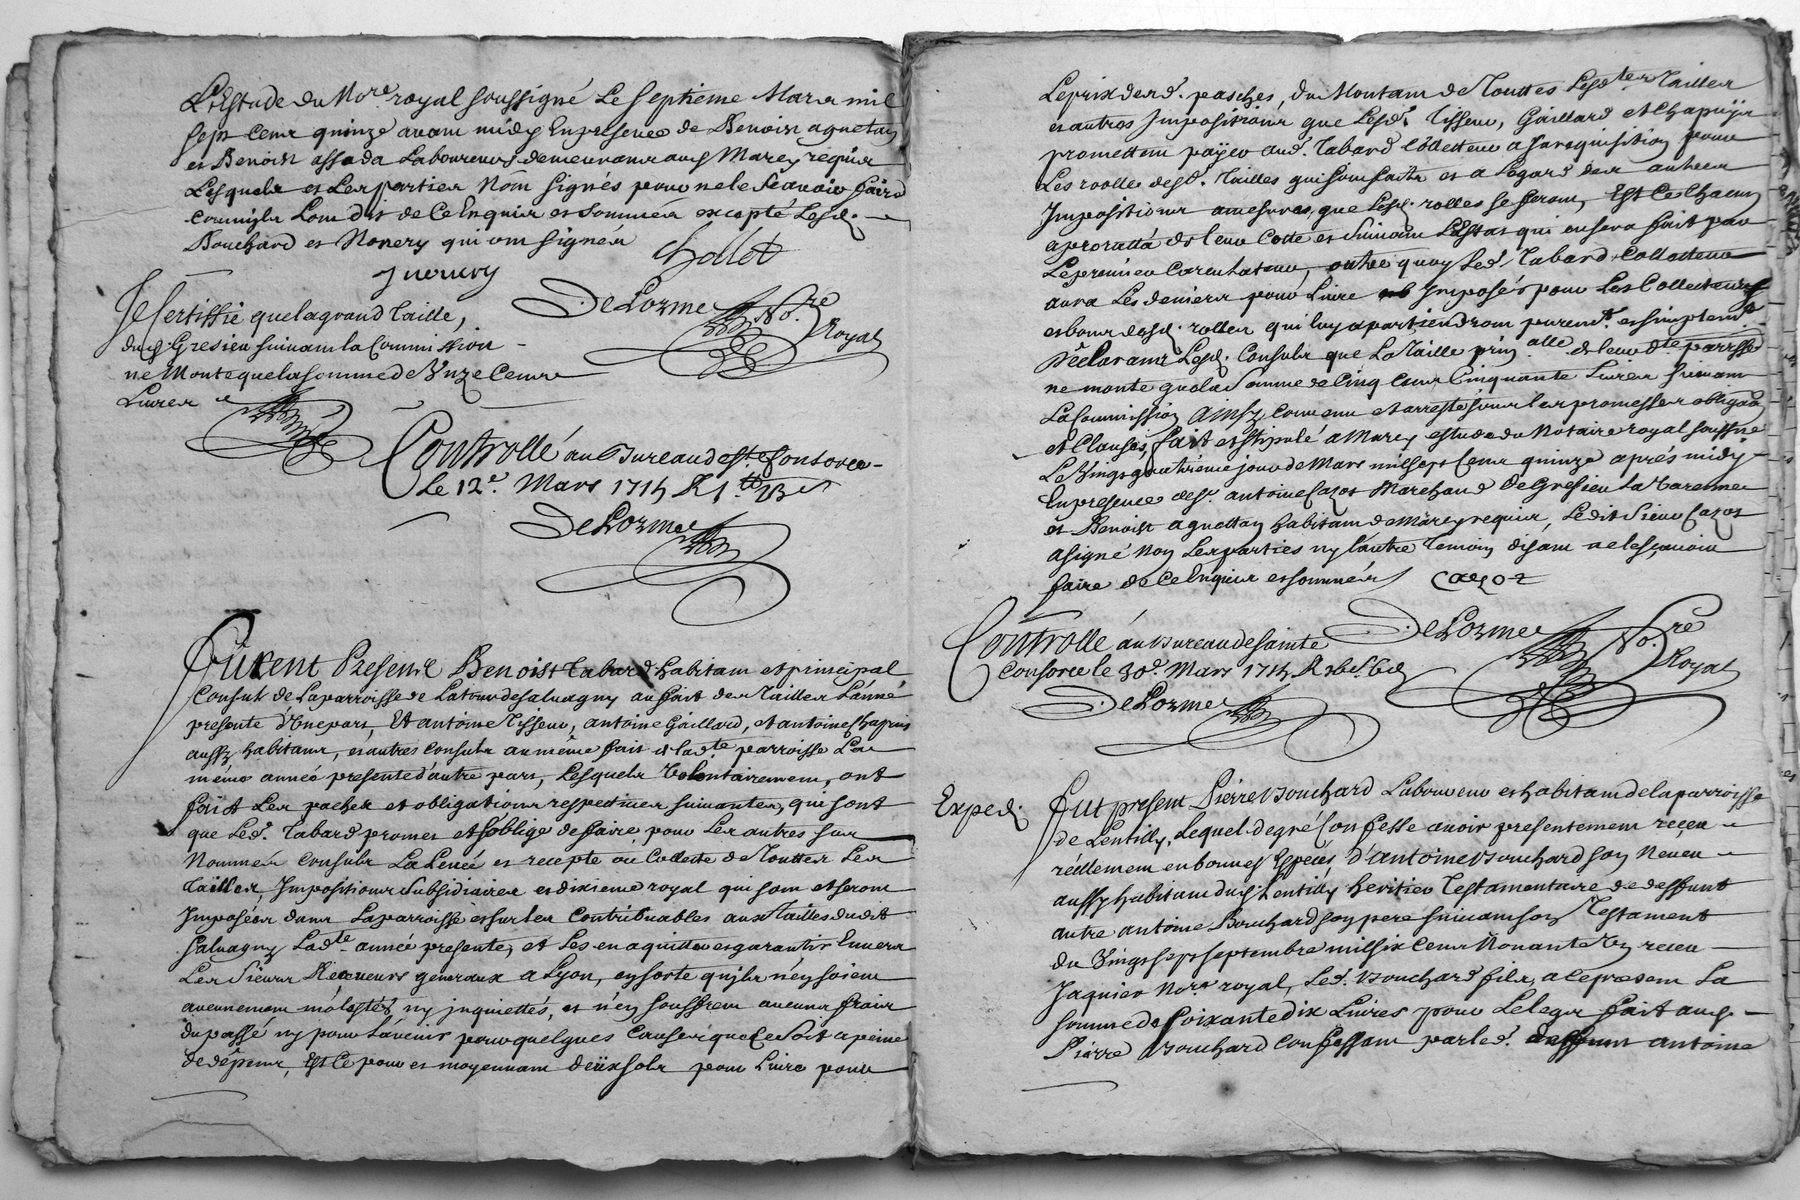 L'Estude du No.re royal soussigné Le septieme Mars mil
sept cens quinze avant midy En presence de Benoist aguettan
et Benoist assada Laboureurs demeurans aud. Marcy
Lesquels et Les parties Non signés pour ne le scavoir faire
Comm'ils Lont dit de Ce Enquis et Sommés excepté Lesd.
Bouchard et Nouery qui ont signés
Chollet
jnouery
De Lorme No.re Royal
Je Certiffie que la grand Taille,
dud. Gresieu suivant la Commission
ne Monte que la somme de Unze Cens
Livres
Controllé au Bureau de s.te Consorce
Le 12.e Mars 1715 R 1 tt
De Lorme
Furent Presens Benoist Tabard habitant et principal
Consul de La parroisse de La tour de salvagny au fait des Tailles Lanné
presente d'Une part, Et antoine Tisseur, antoine Gaillard, et antoine Chapuis
aussy habitans, et autres Consuls au même fait de lad.te parroisse Lad.
même année presente d'autre part, Lesquels Volontairement, ont
fait Les paches et obligations respectives suivantes, qui sont
que Led. Tabard promet et s'oblige de faire pour Les autres sus
Nommés Consuls La Levée et recepte où Collecte de Touttes Les
Tailles, Impositions subsidiaires et dixieme royal qui sont et seront
Imposées dans La parroisse et sur les Contribuables aux Tailles dudit
salvagny Lad.te année presente, et Les en aquitter et garantir Envers
Les Sieurs Receveurs generaux a Lyon, en sorte qu'ils n'en soient
aucunement molestés ny inquiettés, et n'en souffrent aucuns frais
du passé ny pour L'avenir pour quelques Causes que Ce Soit a peine
de dépens, Et Ce pour et moyennant deux sols pour Livre pour
Le prix desd. pasches, du Montant de Touttes Lesd.tes Tailles
et autres Impositions que Lesd. Tisseur, Gaillard et Chapuis
promettent payer aud. Tabard Collecteur a sa requisition pour
Les roolles desd. Tailles qui sont faits et a l'egard des autres
Impositions a mesures que Lesd. rolles se feront, Et Ce Chacun
a proratta de leur Cotte et Suivant L'Estat qui en sera fait par
Le premier Carculateur, outre quoy led. Tabard Collecteur
aura Les deniers pour Livre Imposés pour Les Collecteurs
et bours desd. rolles qui luy apartiendront purem.t et simplem.t
Déclarans Lesd. Consuls que La Taille prin.alle de leur d.te parroisse
ne monte que la Somme de Cinq Cens Cinquante Livres suivant
La Commission Ainsy Convenu et arresté sous les promesses obligaôn
et Clauses, fait et stipulé a Marcy estude du Notaire royal soussigné
Le Vingt quatrieme jour de Mars mil sept Cens quinze aprés midy
En presence de s.r antoine Cazot Marchand de Gresieu La Varenne
et Benoist aguettan habitant de Marcy, Ledit Sieur Cazot
a signé Non Les parties ny L'autre Temoin disant ne le sçavoir
faire de Ce Enquis et sommés Cazot
De Lorme No.re Royal
Controllé au Bureau de sainte
Consorce le 30.e Mars 1715 R
De Lorme
Exped.
Fut present Pierre Bouchard Laboureur et habitant de la parroisse
de Lentilly, Lequel de gré Confesse avoir presentement receu
réellement en bonnes Espèces d'antoine Bouchard son Neveu
aussy habitant dud. Lentilly heritier Testamentaire de deffunt
autre antoine Bouchard son pere suivant son Testament
du Vingt sept septembre mil six Cens Nonante receu
Jaquier No.re royal, Led. Bouchard fils, a Ce present La
somme de Soixante dix Livres pour Le legat fait aud.
Pierre Bouchard Confessant par led. deffunt antoine